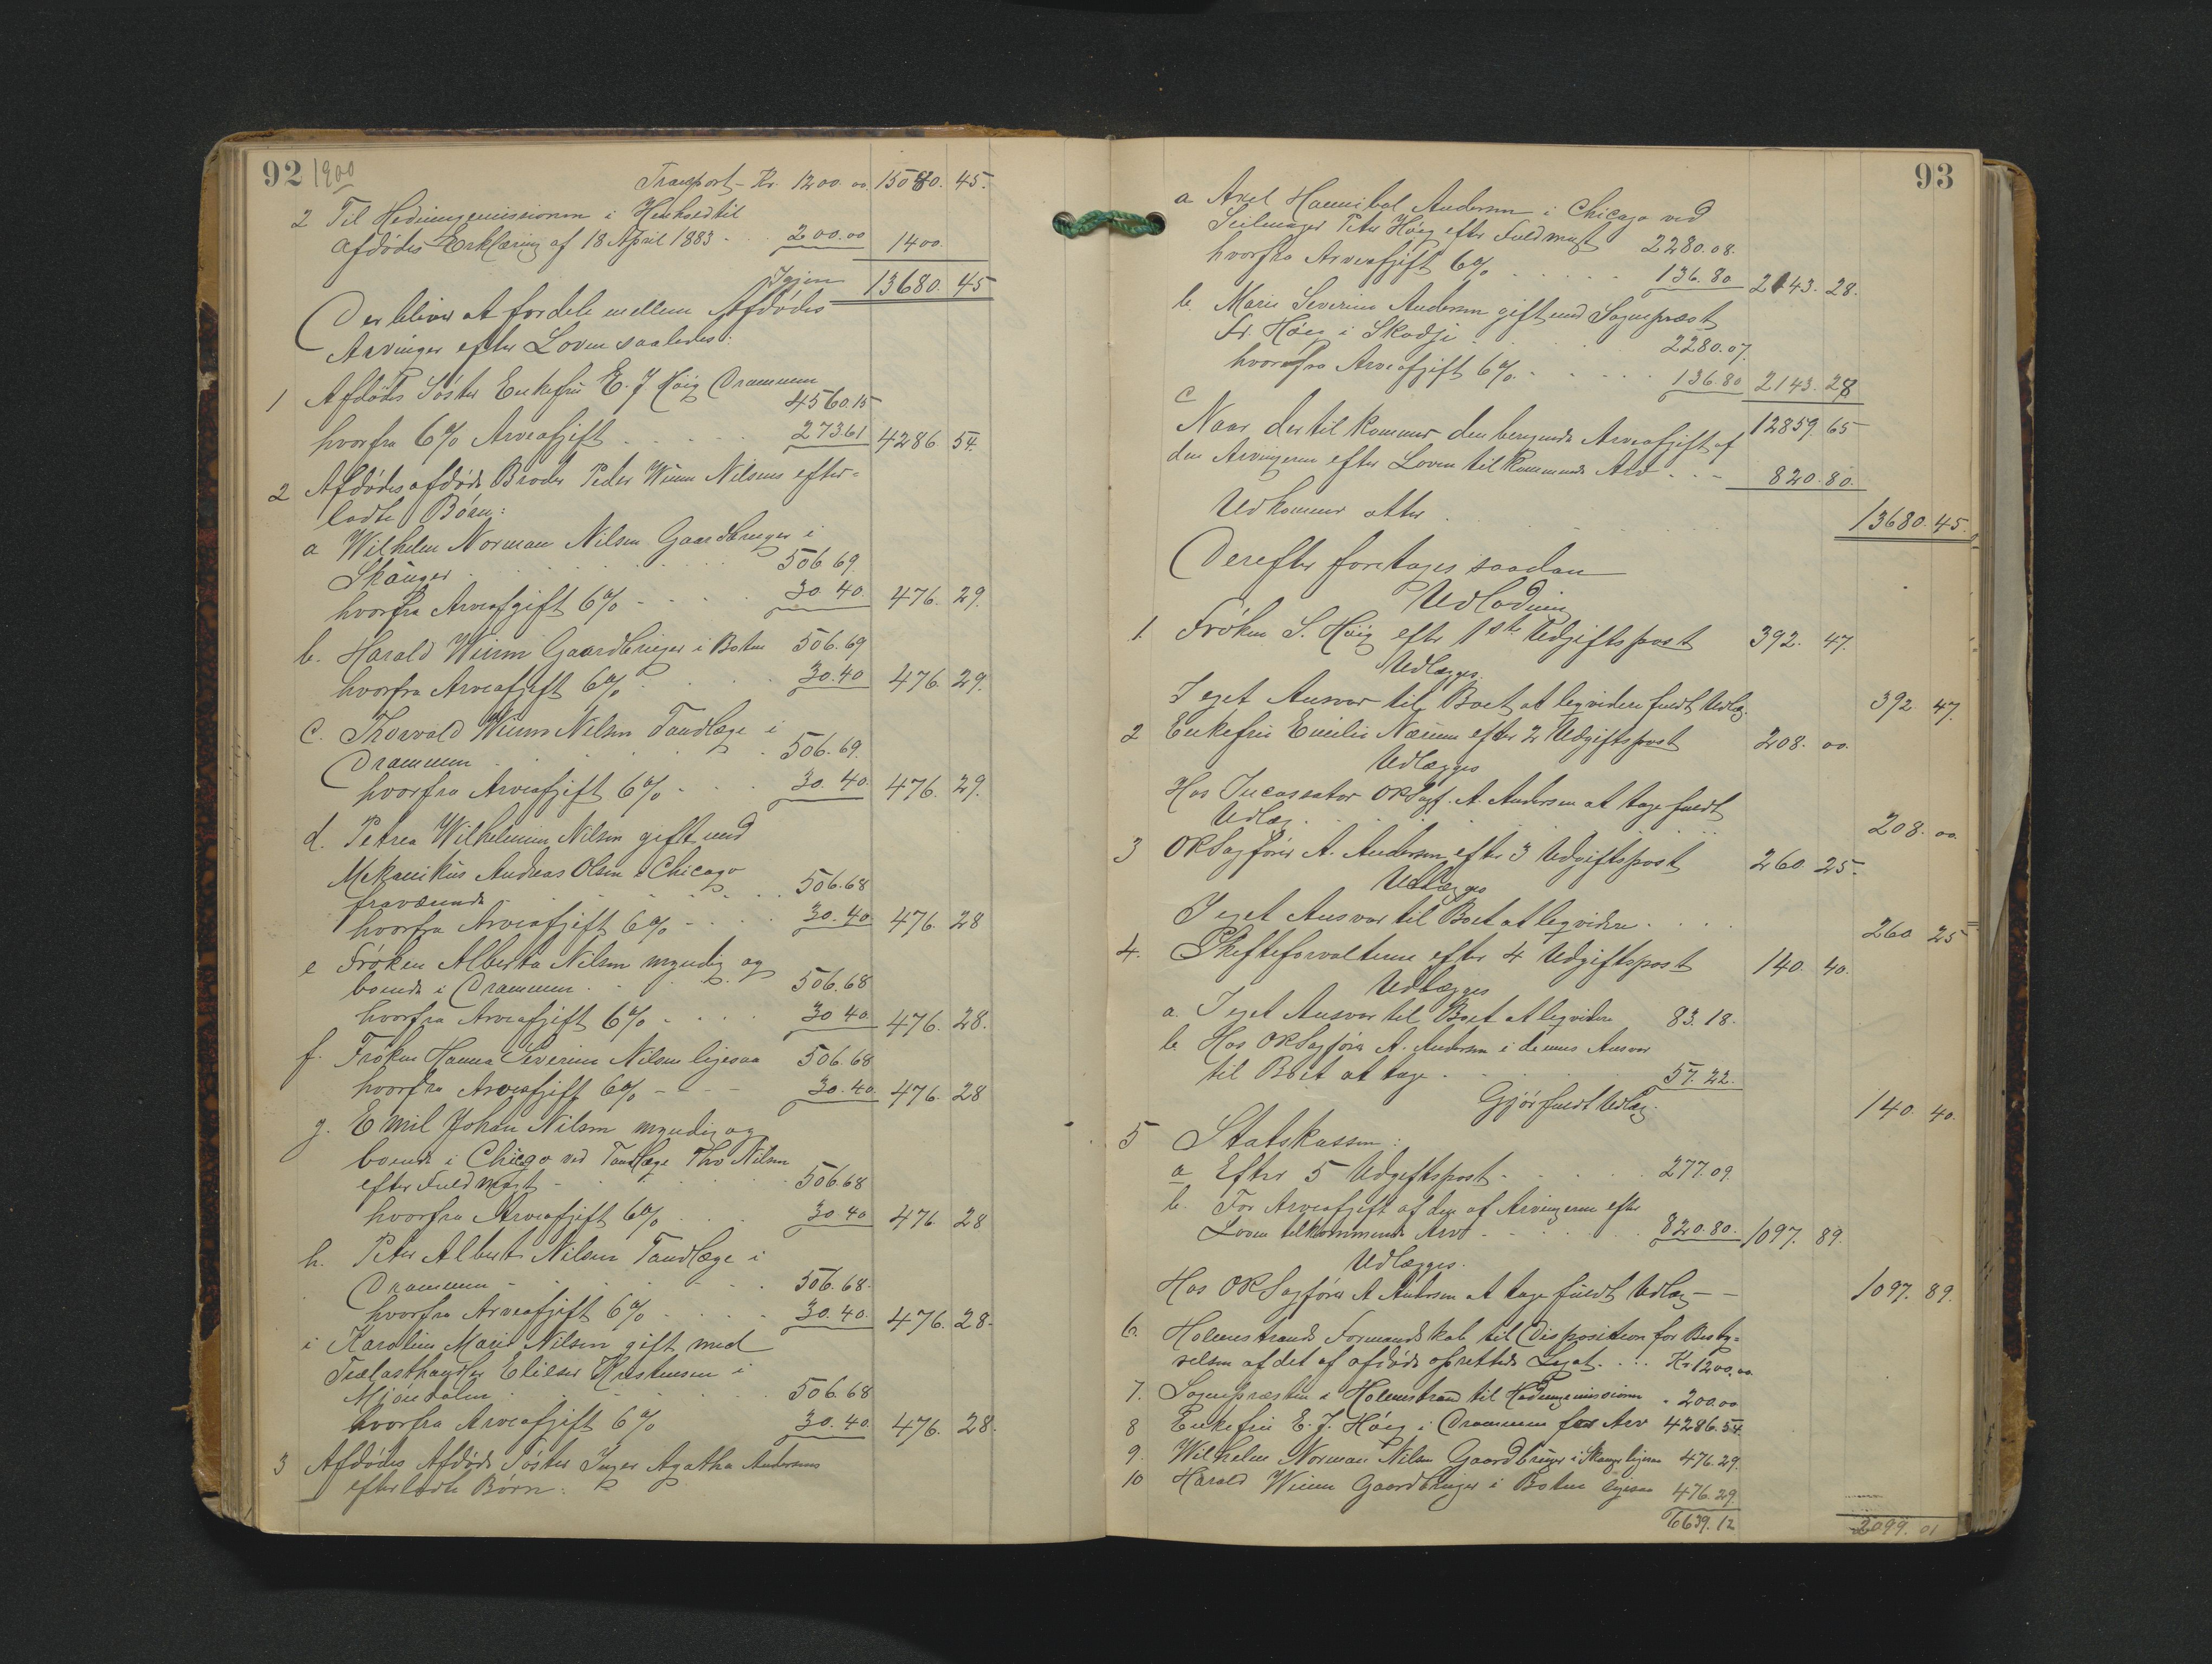 92 1900
Transport Kr. 1200.00 15080.45.
2 Til Hedningemissionen i Henhold til
Afdødes Erklæring af 18 April 1883 . . 200.00 1400
Igjen 13680.45
Der bliver at fordele mellem Afdødes
Arvinger efter Loven saaledes:
1 Afdødes Søster Enkefru E. J Høeg Drammen
4560.15
hvorfra 6% Arveafgift . . . . 273.61 4286 54.
2 Afdødes afdøde Broder Peder Wiim Nilsens efter-
ladte Børn:
a Wilhelm Norman Nilsen Gaardbruger i
Skånger . . . . 506.69.
hvorfra Arveafgift 6% - . . . 30.40 476. 29.
b. Harald Wiim Gaardbruger i Botne 506.69
hvorfra Arveafgift 6% . . . . 30.40 476. 29.
c. Thorvald Wiim Nilsen Tandlæge i
Drammen . . . . 506.69.
hvorfra Arveafgift 6% - . . 30.40. 476. 29.
d. Petrea Wilhelmine Nilsen gift med
Mekanikus Andreas Olsen i Chicago
fraværende . . . . 506.68
hvorfra Arveafgift 6% - . . . 30.40 476. 28
e Frøken Alberta Nilsen myndig og
boende i Drammen . . . . 506.68
hvorfra Arveafgift 6% . . . . 30 40 476. 28.
f. Frøken Hanna Severine Nilsen ligesaa 506.68
hvorfra Arveafgift 6% - - - 30.40. 476. 28
g. Emil Johan Nilsen myndig og
boende i Chicago ved Tandlæge Tho Nilsen
efter Fuldmagt - . . . . 506.68
hvorfra Arveafgift 6% . . . 30.40 476 28
h. Peter Albert Nilsen Tandlæge i
Drammen - . . . . 506.68.
hvorfra Arveafgift 6% . . . . 30.40. 476. 28-
i Karoline Marie Nilsen gift med
Trælasthandler Elieser Kristensen i
Mjøndalen . . . . 506.68
hvorfra Arveafgift 6% 30.40. 476. 28.
3 Afdødes Afdøde Søster Inger Agatha Andersens
efterladte Børn:
93
a Axel Hannibal Andersen i Chicago ved
Seilmager Peter Høeg efter Fuldmagt 2280.08.
hvorfra Arveafgift 6% . . . . 136.80 2143. 28.
b. Marie Severine Andersen gift med Sogneprest
Fr. Høeg i Skodje . . . . 2280.07.
hvorfra Arveafgift 6% . . . . 136.80 2143. 28
c
12859 65
Naar dertil kommer den beregnede Arveafgift af
den Arvingerne efter Loven tilkommende Arv . . - 820.80.
Udkommer atter . . . . 13680.45.
Derefter foretages saadan
Udlodning
1. Frøken S. Høeg efter 1ste Udgiftspost 392. 47.
Udlægges.
I eget Ansvar til Boet at ligvidere fuldt Udlæg. 392 47.
2 Enkefru Emilie Næum efter 2 Udgiftspost 208. 00.
Udlægges
Hos Incassator ORSagf. A. Andersen at tage fuldt
Udlæg . . . . 208. 00.
3 ORSagfører A. Andersen efter 3 Udgiftspost 260 25.
Udlægges
I eget Ansvar til Boet at ligvidere . . . . 260 25
4. Skifteforvalteren efter 4 Udgiftspost 140. 40.
Udlægges
a. I eget Ansvar til Boet at ligvidere 83.18.
b Hos ORSagfører A. Andersen i dennes Ansvar
til Boet at tage . . . . 57.22.
Gjør fuldt Udlæg. 140. 40.
5 Statskassen:
a Efter 5 Udgiftspost . . . . 277.09.
b. For Arveafgift af den af Arvingerne efter
Loven tilkommende Arv - . . . 820.80. 1097. 89.
Udlægges.
Hos ORSagfører A Andersen at tage fuldt Udlæg - - 1097. 89.
6. Holmestrands Formandskab til Disposition for Besty-
relsen af det af afdøde oprettede Legat . . . Kr 1200.00
7. Sognepresten i Holmestrand til Hedningemissionen . 200.00
8 Enkefru E. J. Høeg i Drammen for Arv 4286.54.
9. Wilhelm Norman Nilsen Gaardbruger i Skånger ligesaa 476.29.
10 Harald Wiim Gaardbruger i Botne ligesaa 476.29
6639.12
2099. 01